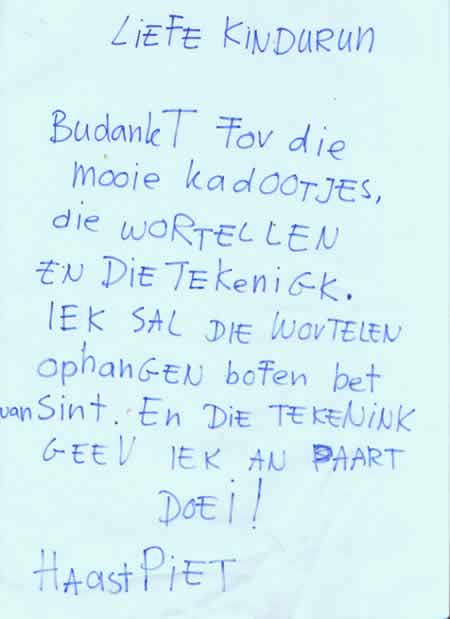 LiEFE KiNDURUN
BudankT Fov die
mooie kadOOTJES,
die WORTELLEN
EN DiE TEKeniGK.
IEK SAL DIE WOVTELEN
ophanGEN boFen bet
van Sint. En DIE TEKENINK
GEEV IEK AN PAART
DOEi!
HAastPiET